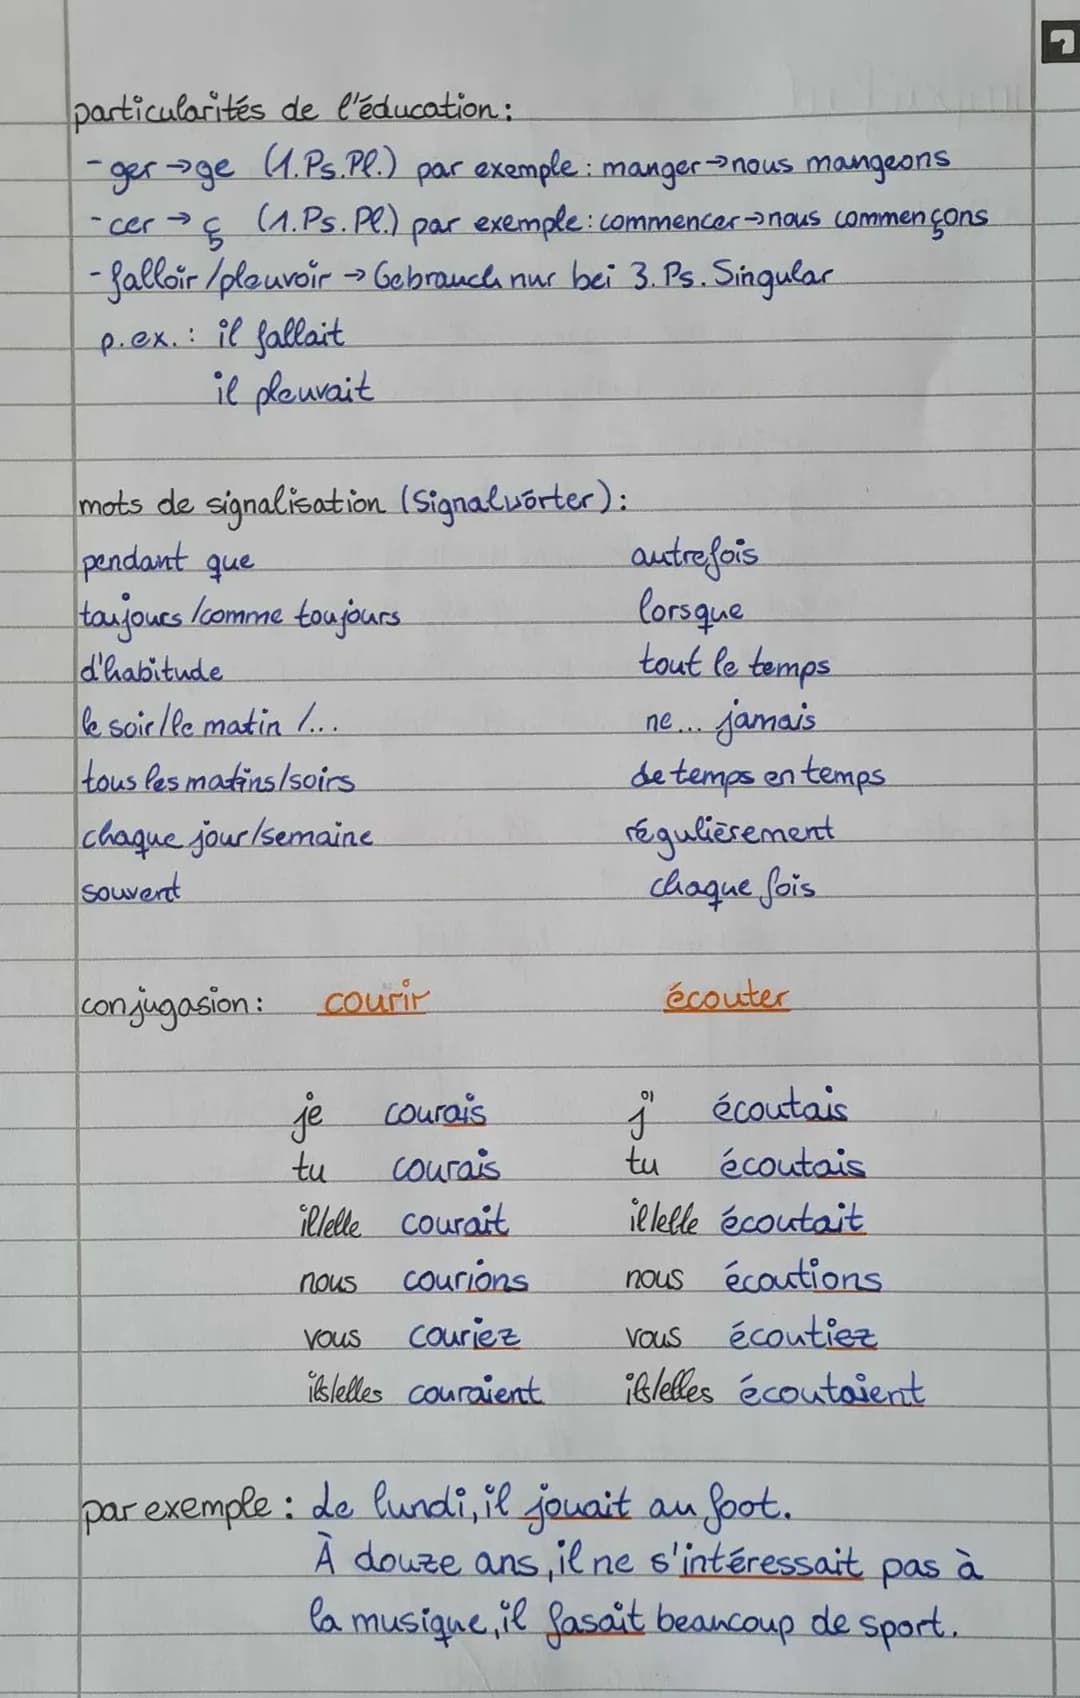 particularités de l'éducation:
- ger → ge (1.Ps.Pl.) par exemple: manger → nous mangeons
- cer → ç (1.Ps.Pl.) par exemple: commencer → nous commençons
- falloir/pleuvoir → Gebrauch nur bei 3.Ps. Singular
p.ex.: il fallait
il pleuvait
mots de signalisation (Signalwörter):
pendant que autrefois
toujours/comme toujours lorsque
d'habitude tout le temps
le soir/le matin/... ne... jamais
tous les matins/soirs de temps en temps
chaque jour/semaine régulièrement
souvent chaque fois
conjugasion: courir écouter
je courais j' écoutais
tu courais tu écoutais
il/elle courait il/elle écoutait
nous courions nous écoutions
vous couriez vous écoutiez
ils/elles couraient ils/elles écoutaient
par exemple: de lundi, il jouait au foot.
À douze ans, il ne s'intéressait pas à
la musique, il fasait beaucoup de sport.